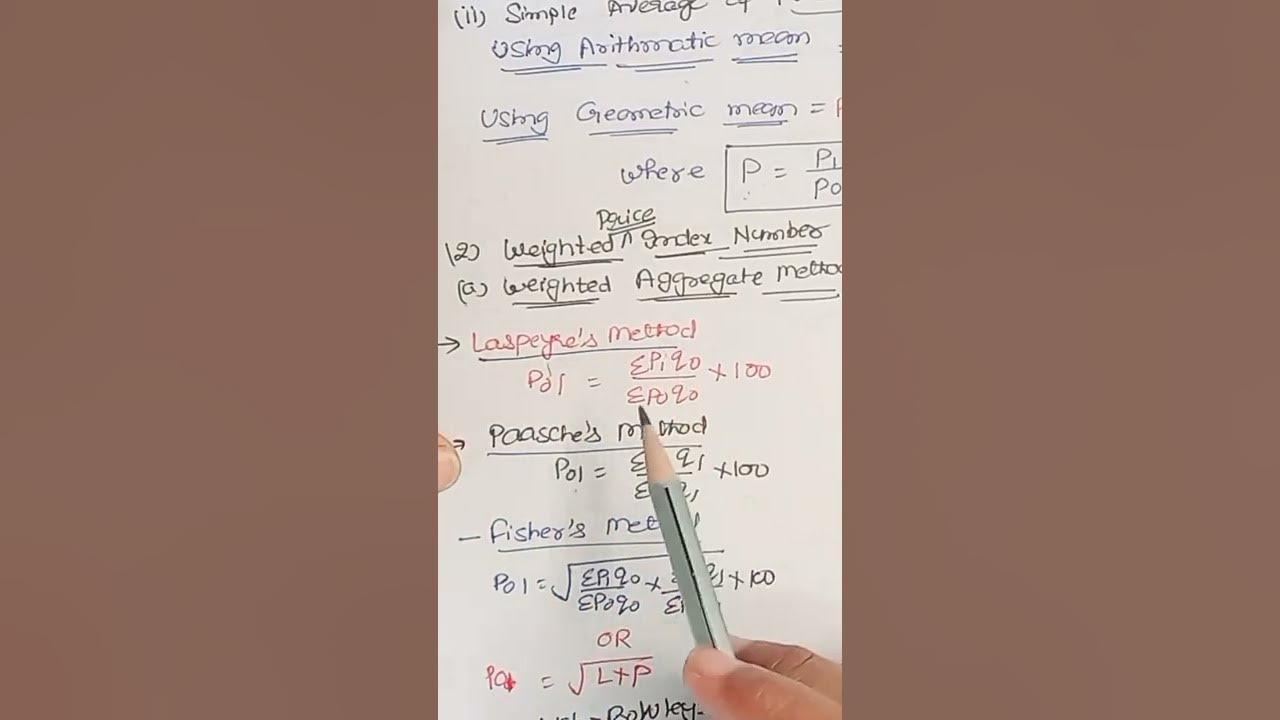 (ii) Simple Average of
Using Arithmatic mean =
Using Geometric mean =
where P = P1
P0
Price
(2) Weighted ^ Index Number
(a) Weighted Aggregate Metho
→ Laspeyre's Method
P01 = ΣP1q0 × 100
ΣP0q0
→ Paasche's M thod
P01 = Σ q1 ×100
Σ q1
- Fisher's Met
P01 = √ΣP1q0 × q1 × 100
ΣP0q0 Σ
OR
= √L+P
Bowley-